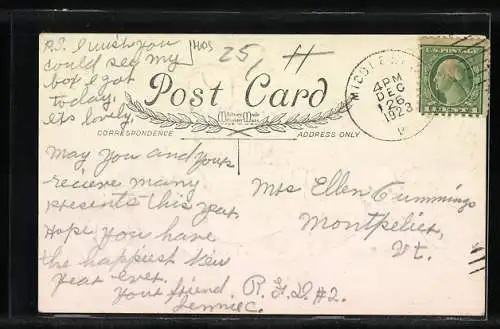 P.S. I wish you
could see my
box I got
today.
Its lovely.
HOS
25, H
Post Card
CORRESPONDENCE
ADDRESS ONLY
MIDDLE
4 PM
DEC
26
1923
V
U.S. POSTAGE
May you and yours
recieve many
presents this year.
Hope you have
the happiest New
year ever.
Your friend
Jennie C.
Mrs Ellen Cummings
Montpelier,
Vt.
R.F.D. #2.